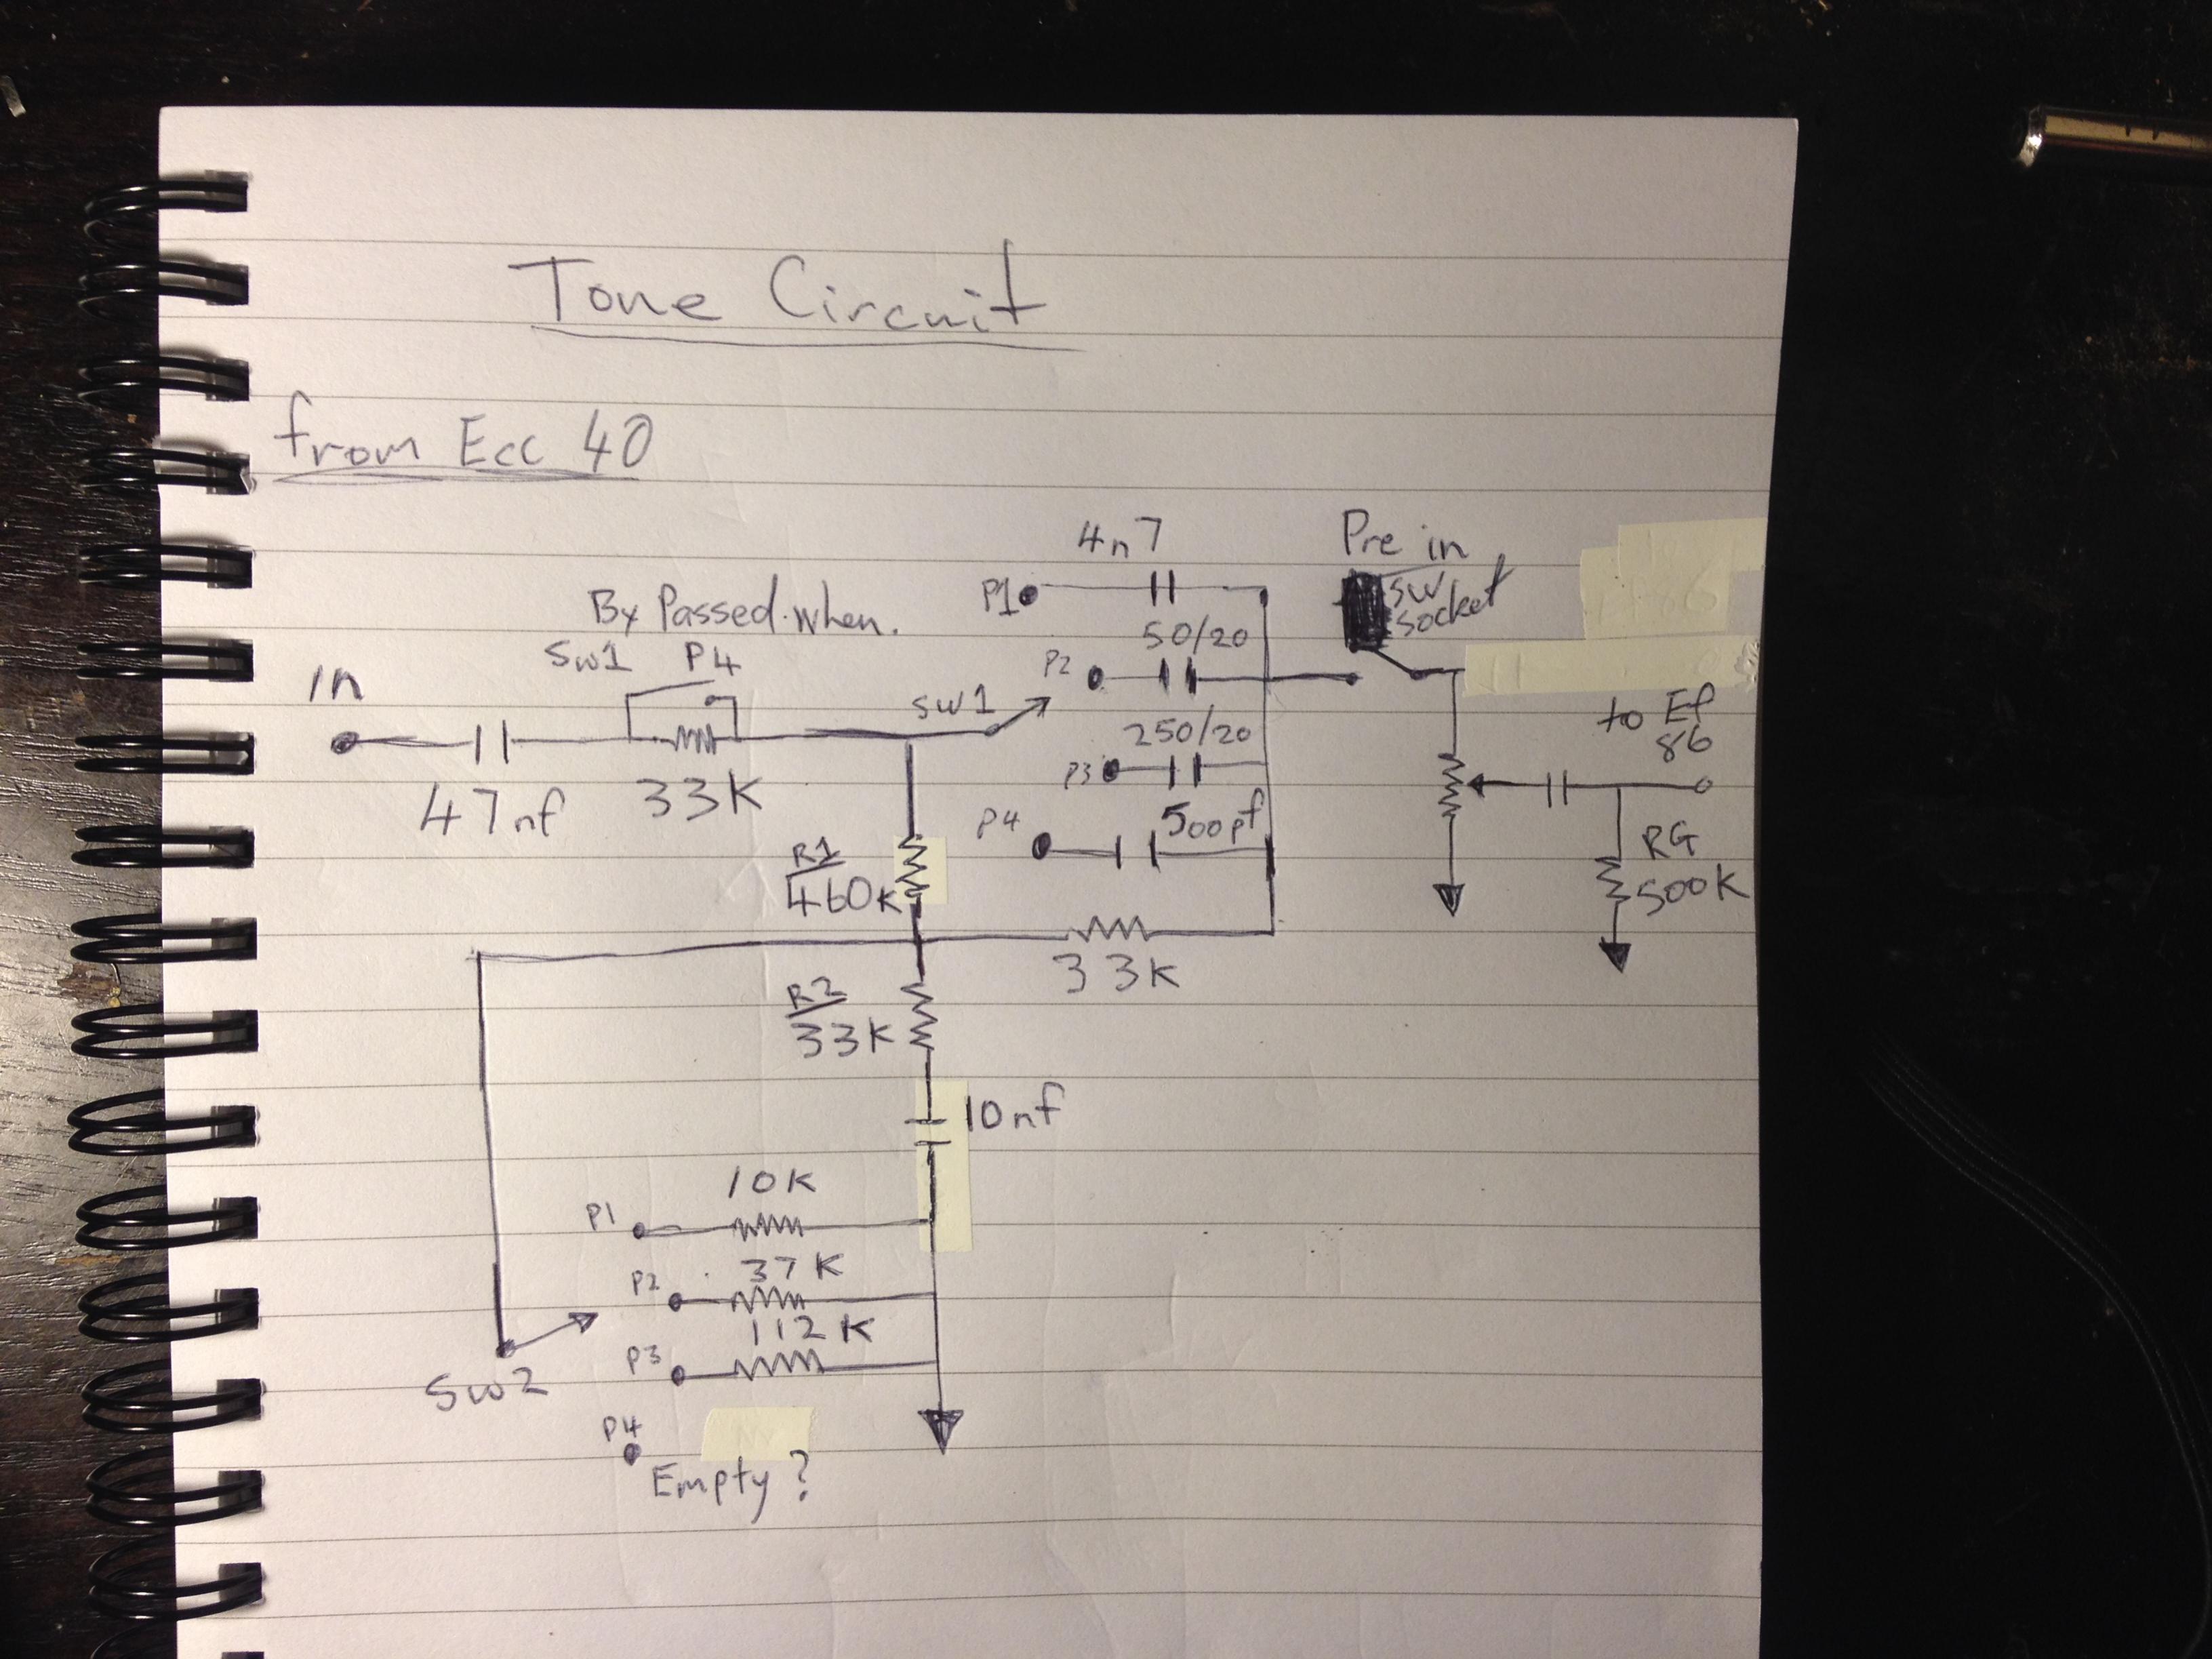 Tone Circuit
from Ecc 40
4n7
Pre in
sw
socket
By Passed when.
P1
50/20
Sw1 P4
P2
In
sw1
250/20
to Ef
86
P3
47nf
33K
P4
500pf
R1
460K
RG
500K
33K
R2
33K
10nf
10K
P1
37K
P2
112K
P3
Sw2
P4
Empty?